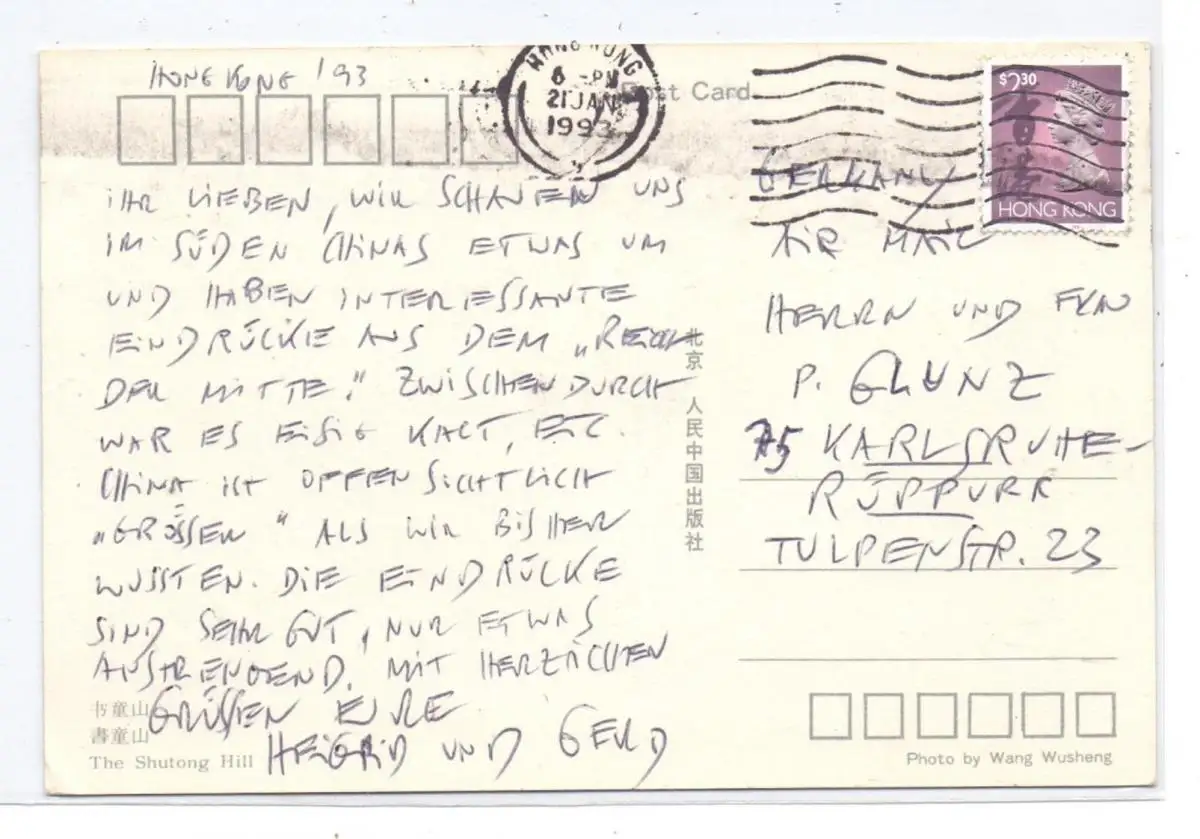 HONG KONG '93
HONG KONG
6 - PM
21 JAN
1993
Post Card
$2.30
香港
HONG KONG
IHR LIEBEN, WIR SCHAUEN UNS
IM SÜDEN CHINAS ETWAS UM
UND HABEN INTERESSANTE
EINDRÜCKE AUS DEM „REICH
DER MITTE." ZWISCHENDURCH
WAR ES EISIG KALT, ETC.
CHINA IST OFFENSICHTLICH
„GRÖSSER" ALS WIR BISHER
WUSSTEN. DIE EINDRÜCKE
SIND SEHR GUT, NUR ETWAS
ANSTRENGEND. MIT HERZLICHEN
GRÜSSEN EURE
HEIGRID UND GERD
书童山
書童山
The Shutong Hill
北京 人民中国出版社
GERMANY
AIR MAIL
HERRN UND FRAU
P. GLUNZ
75 KARLSRUHE-
RÜPPURR
TULPENSTR. 23
Photo by Wang Wusheng